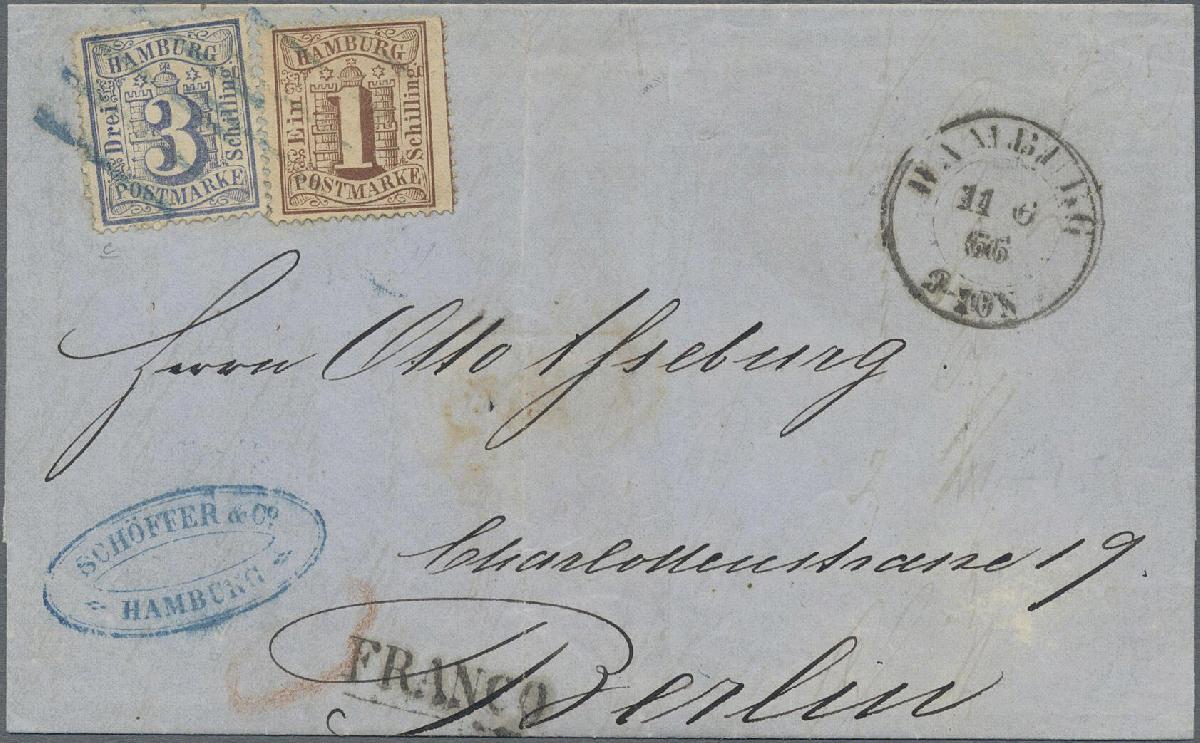 HAMBURG
Drei
3
Schilling
POSTMARKE
HAMBURG
Ein
1
Schilling
POSTMARKE
HAMBURG
11 6
66
9-10N
Herrn Otto Asseburg
SCHÖFFER & Co.
HAMBURG
Charlottenstrasse 19.
FRANCO
Berlin